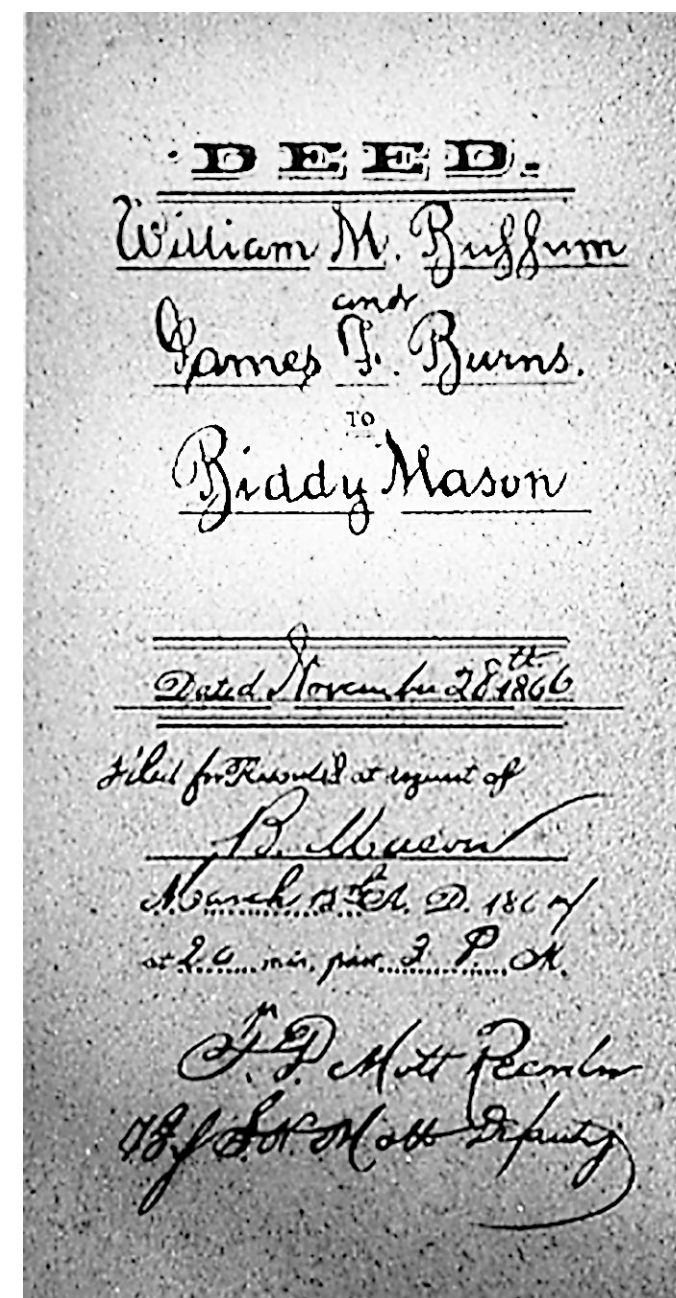 DEED.
William M. Buffum
and
James F. Burns.
TO
Biddy Mason
Dated November 28th 1866
Filed for Record at request of
B. Mason
March 13th A. D. 1867
at 20 min. past 3 P. M.
T. D. Mott Recorder
By S. H. Mott Deputy